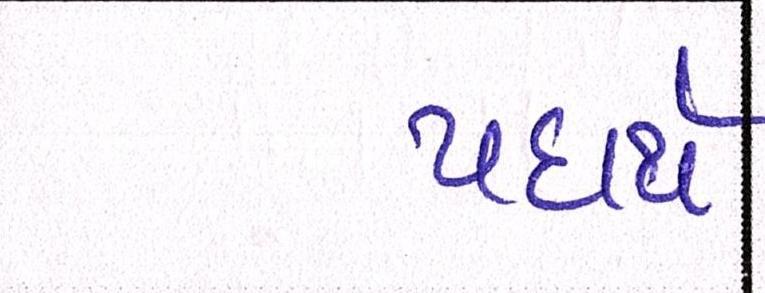 પદાર્થ